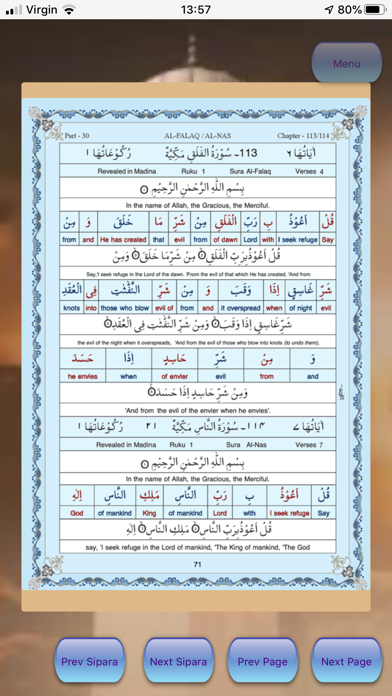 Virgin 13:57 80%
Menu
Part - 30 AL-FALAQ / AL-NAS Chapter - 113/114
اٰيَاتُهَا ٦ 113۔ سُوْرَةُ الْفَلَقِ مَكِّيَّةٌ رُكُوْعَاتُهَا ١
Revealed in Madina Ruku 1 Sura Al-Falaq Verses 4
بِسْمِ اللّٰهِ الرَّحْمٰنِ الرَّحِيْمِ
In the name of Allah, the Gracious, the Merciful.
قُلْ اَعُوْذُ بِ رَبِّ الْفَلَقِ مِنْ شَرِّ مَا خَلَقَ وَ مِنْ
from and He has created that evil from of dawn Lord with I seek refuge Say
قُلْ اَعُوْذُ بِرَبِّ الْفَلَقِ مِنْ شَرِّ مَا خَلَقَ وَمِنْ
Say,'I seek refuge in the Lord of the dawn. 'From the evil of that which He has created, 'And from
شَرِّ غَاسِقٍ اِذَا وَقَبَ وَ مِنْ شَرِّ النَّفّٰثٰتِ فِى الْعُقَدِ
knots into those who blow evil of from and it overspread when of night evil
شَرِّ غَاسِقٍ اِذَا وَقَبَ وَمِنْ شَرِّ النَّفّٰثٰتِ فِى الْعُقَدِ
the evil of the night when it overspreads, 'And from the evil of those who blow into knots (to undo them),
وَ مِنْ شَرِّ حَاسِدٍ اِذَا حَسَدَ
he envies when of envier evil from and
وَمِنْ شَرِّ حَاسِدٍ اِذَا حَسَدَ
'And from the evil of the envier when he envies'.
اٰيَاتُهَا ٧ ١١٤۔ سُوْرَةُ النَّاسِ مَكِّيَّةٌ ٢١ رُكُوْعَاتُهَا ١
Revealed in Madina Ruku 1 Sura Al-Nas Verses 7
بِسْمِ اللّٰهِ الرَّحْمٰنِ الرَّحِيْمِ
In the name of Allah, the Gracious, the Merciful.
قُلْ اَعُوْذُ بِ رَبِّ النَّاسِ مَلِكِ النَّاسِ اِلٰهِ
God of mankind King of mankind Lord with I seek refuge Say
قُلْ اَعُوْذُ بِرَبِّ النَّاسِ مَلِكِ النَّاسِ اِلٰهِ
say, 'I seek refuge in the Lord of mankind, 'The King of mankind, 'The God
71
Prev Sipara Next Sipara Prev Page Next Page